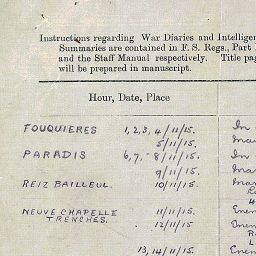 Instructions regarding War Diaries and Intelligen
Summaries are contained in F. S. Regs., Part
and the Staff Manual respectively. Title pag
will be prepared in manuscript.
Hour, Date, Place
FOUQUIERES 1, 2, 3, 4/11/15. In
5/11/15. Mar
PARADIS 6, 7, 8/11/15. In
9/11/15. Mar
REIZ BAILLEUL. 10/11/15. Mar
NEUVE CHAPELLE 11/11/15. Enem
TRENCHES. 12/11/15 Enem
13, 14/11/15. Enem